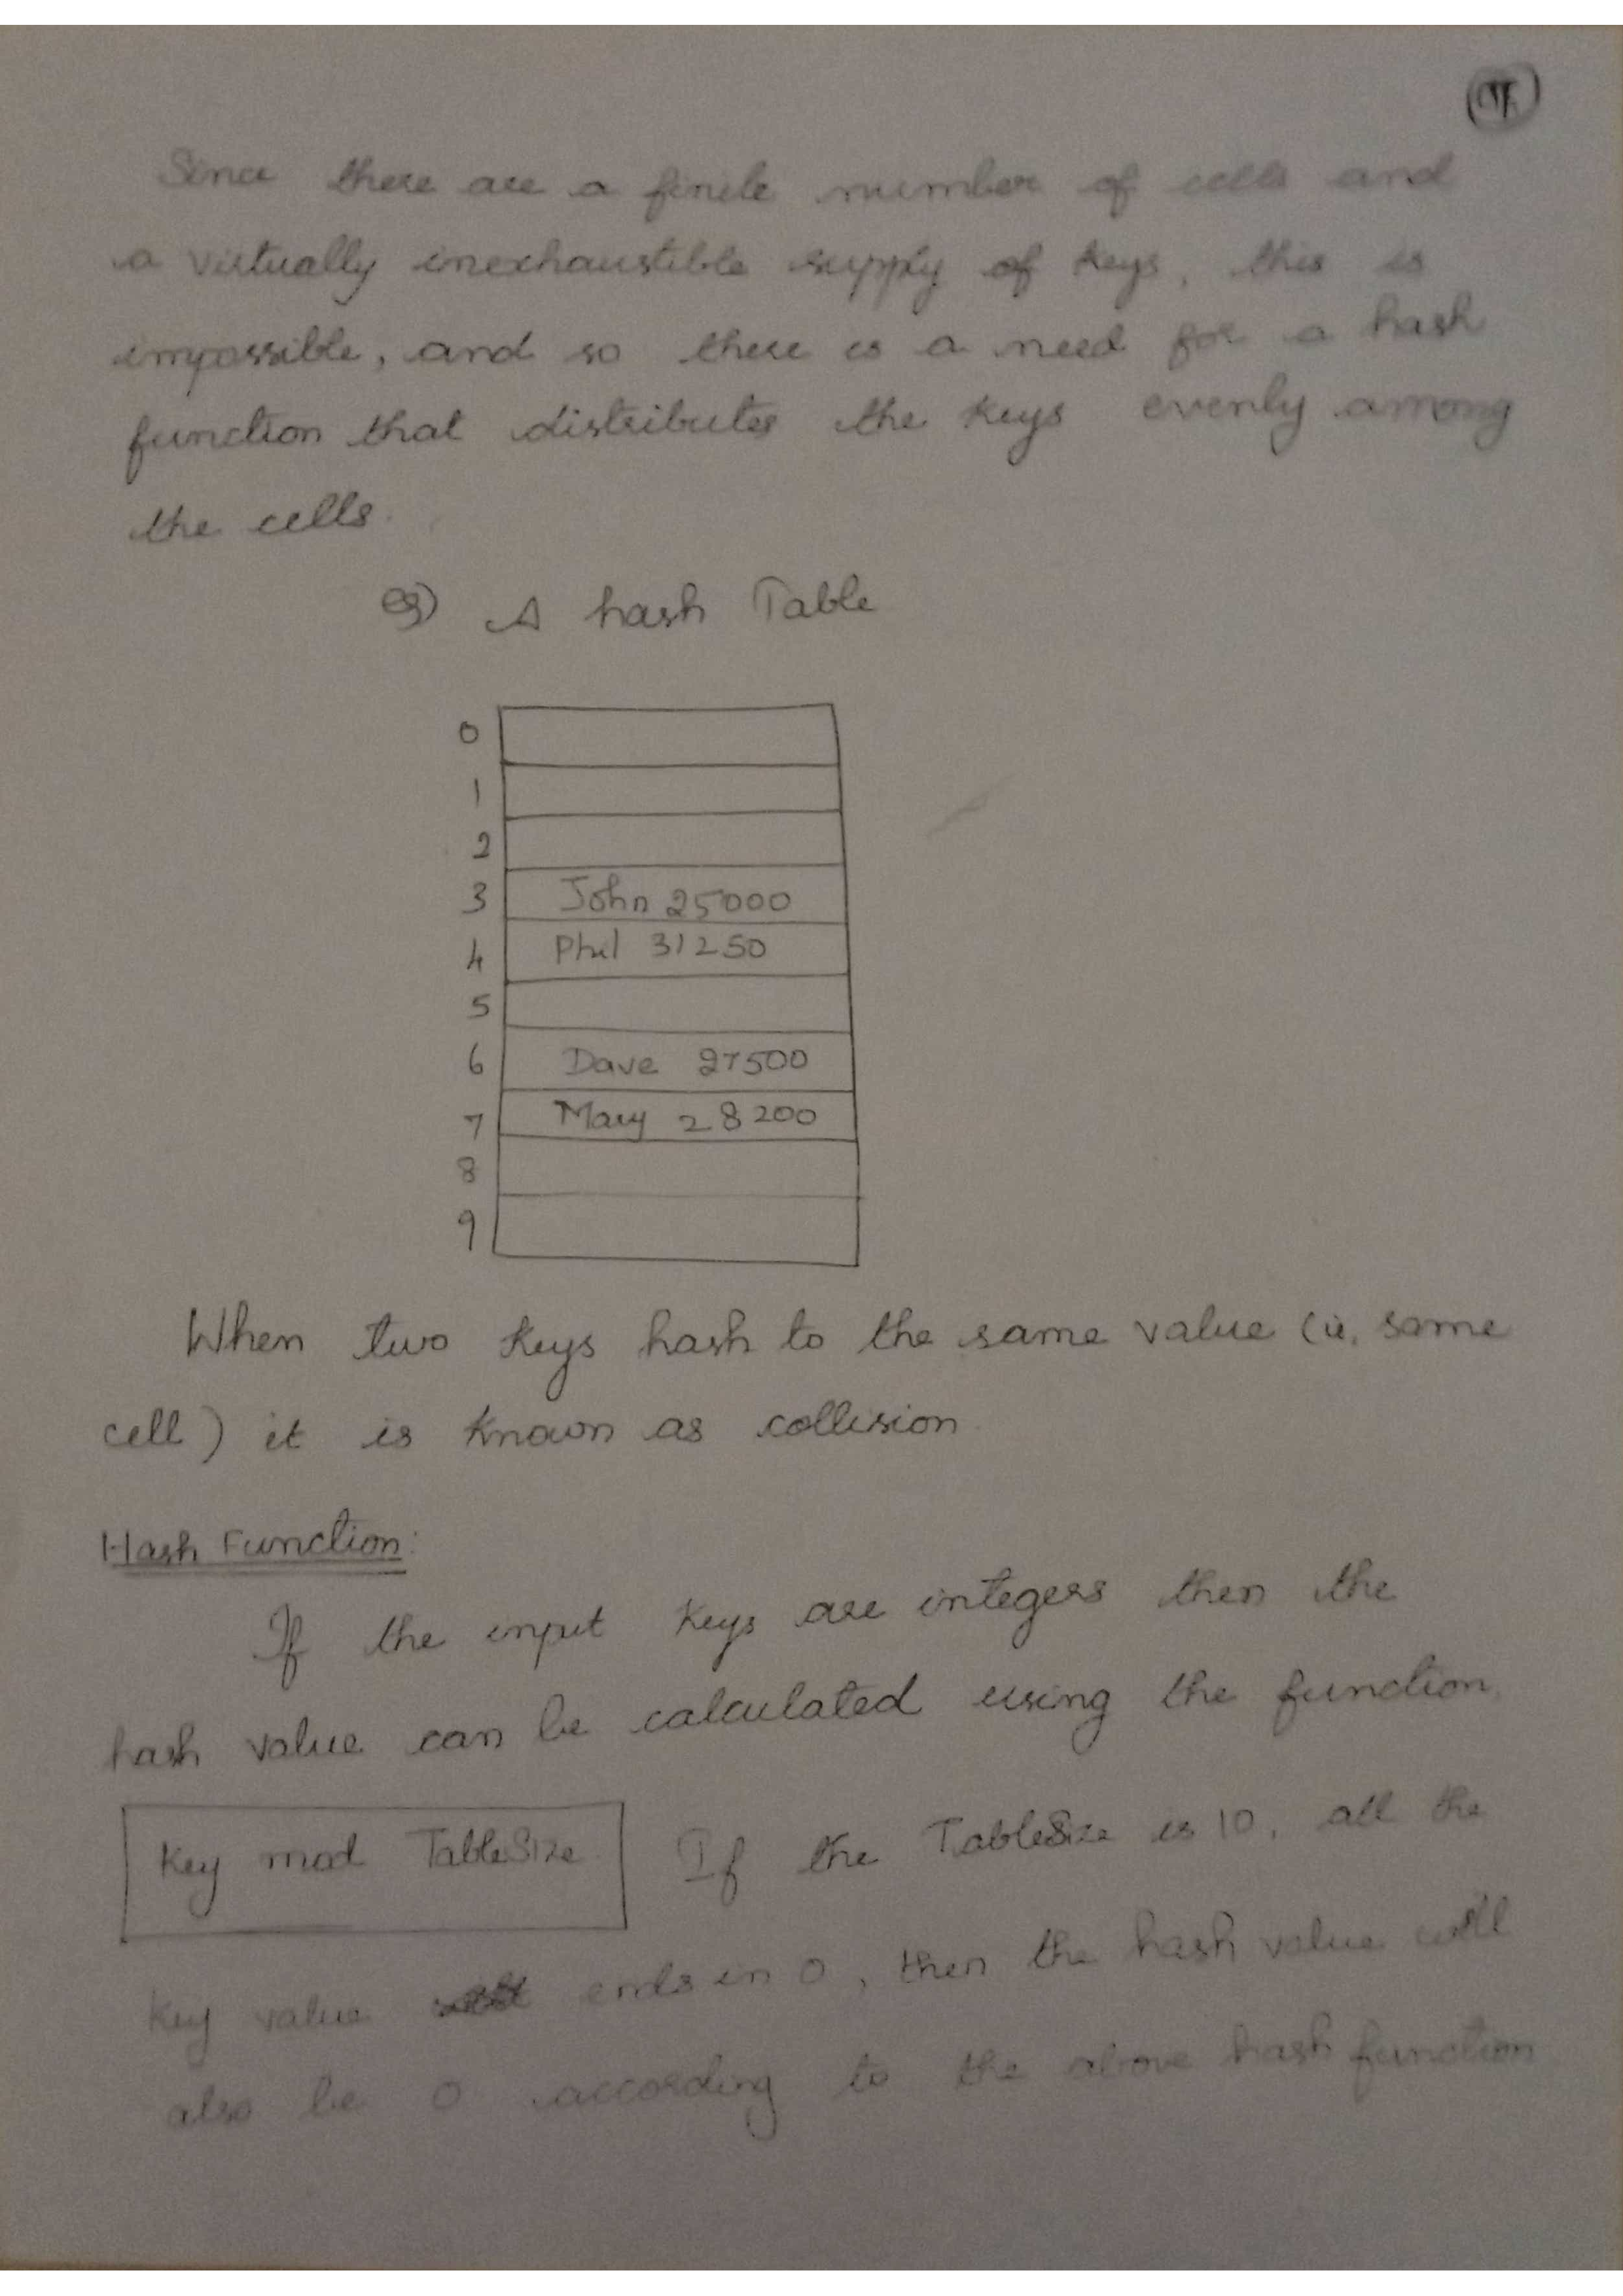 Since there are a finite number of cells and
a virtually inexhaustible supply of keys, this is
impossible, and so there is a need for a hash
function that distributes the keys evenly among
the cells.
eg) A hash Table
0
1
2
3 John 25000
4 Phil 31250
5
6 Dave 27500
7 Mary 28200
8
9
When two keys hash to the same value (ie, same
cell) it is known as collision.
Hash Function:
If the input keys are integers then the
hash value can be calculated using the function.
Key mod TableSize. If the TableSize is 10, all the
key value ends in 0, then the hash value will
also be 0 according to the above hash function